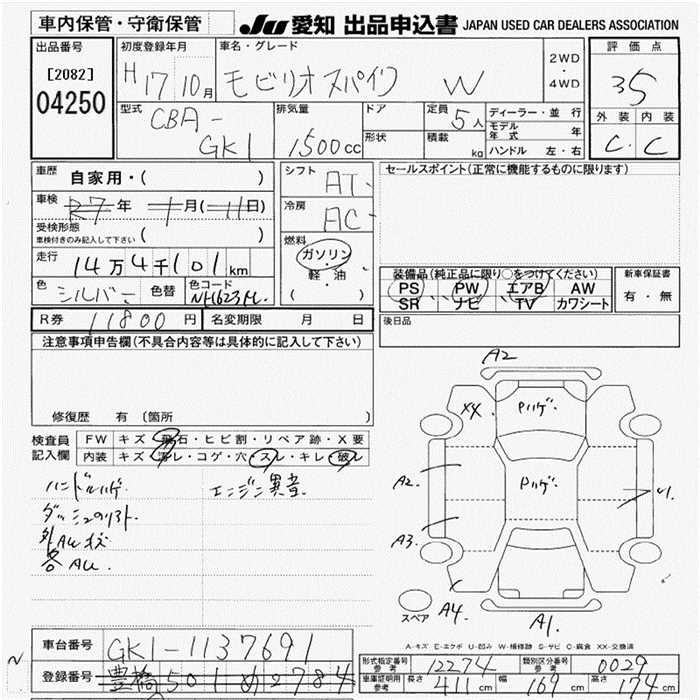 車内保管・守衛保管
JU 愛知 出品申込書 JAPAN USED CAR DEALERS ASSOCIATION
出品番号
[2082]
04250
初度登録年月
H17 10月
車名・グレード
モビリオスパイク W
2WD
・
4WD
評価点
3.5
外装 内装
C C
型式
CBA-
GK1
排気量
1500cc
ドア
形状
定員
5人
積載
kg
ディーラー・並行
モデル年式 年
ハンドル 左・右
車歴
自家用・( )
車検
R7年 1月(11日)
受検形態
車検付きのみ記入して下さい
( )
走行
14万4千101km
色
シルバー
色替
色コード
NH623M
シフト
AT
冷房
AC
燃料
ガソリン
・
軽・油
( )
セールスポイント(正常に機能するものに限ります)
装備品(純正品に限り○をつけてください)
PS PW エアB AW
SR ナビ TV カワシート
新車保証書
有・無
R券 11800円
名変期限 月 日
後日品
注意事項申告欄(不具合内容等は具体的に記入して下さい)
修復歴 有 〔箇所
検査員
記入欄
FW キズ・飛石・ヒビ割・リペア跡・X要
内装 キズ・汚レ・コゲ・穴・スレ・キレ・破レ
ハンドルハゲ
エンジン異音
ダッシュのリフト
外AW
各AW
A2
XX
Pハゲ
A2
Pハゲ
A3
A4
A1
スペア
A-キズ E-エクボ U-凹み W-補修跡 S-サビ C-腐食 XX-交換済
車台番号
GK1-1137691
登録番号
豊橋501め2784
型式指定番号
参考
12274
類別区分番号
参考
0029
車庫証明用
参考
長さ 411cm
幅 169cm
高さ 174cm